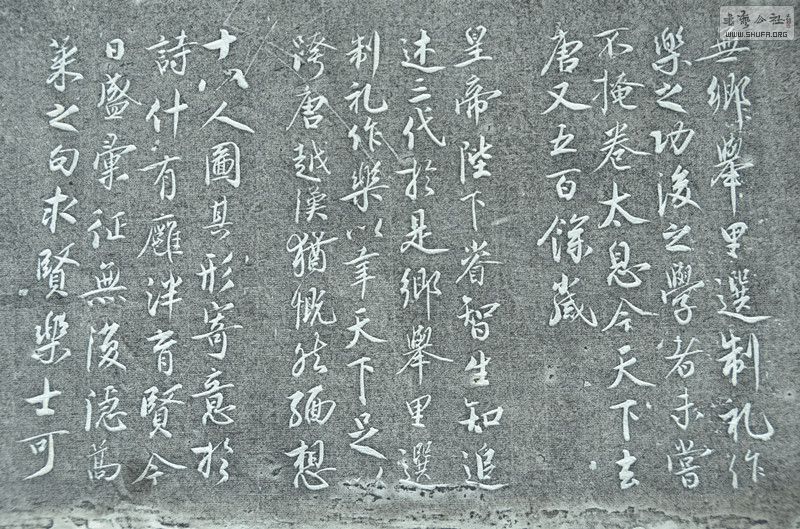 無鄉舉里選制礼作
樂之功後之學者未嘗
不掩卷太息今天下去
唐又五百餘歲
皇帝陛下睿智生知追
述三代於是鄉舉里選
制礼作樂以幸天下足以
跨唐越漢猶慨然緬想
十八人圖其形寄意於
詩什有廱泮育賢今
日盛彙征無復隱蒿
萊之句求賢樂士可
書藝公社
WWW.SHUFA.ORG